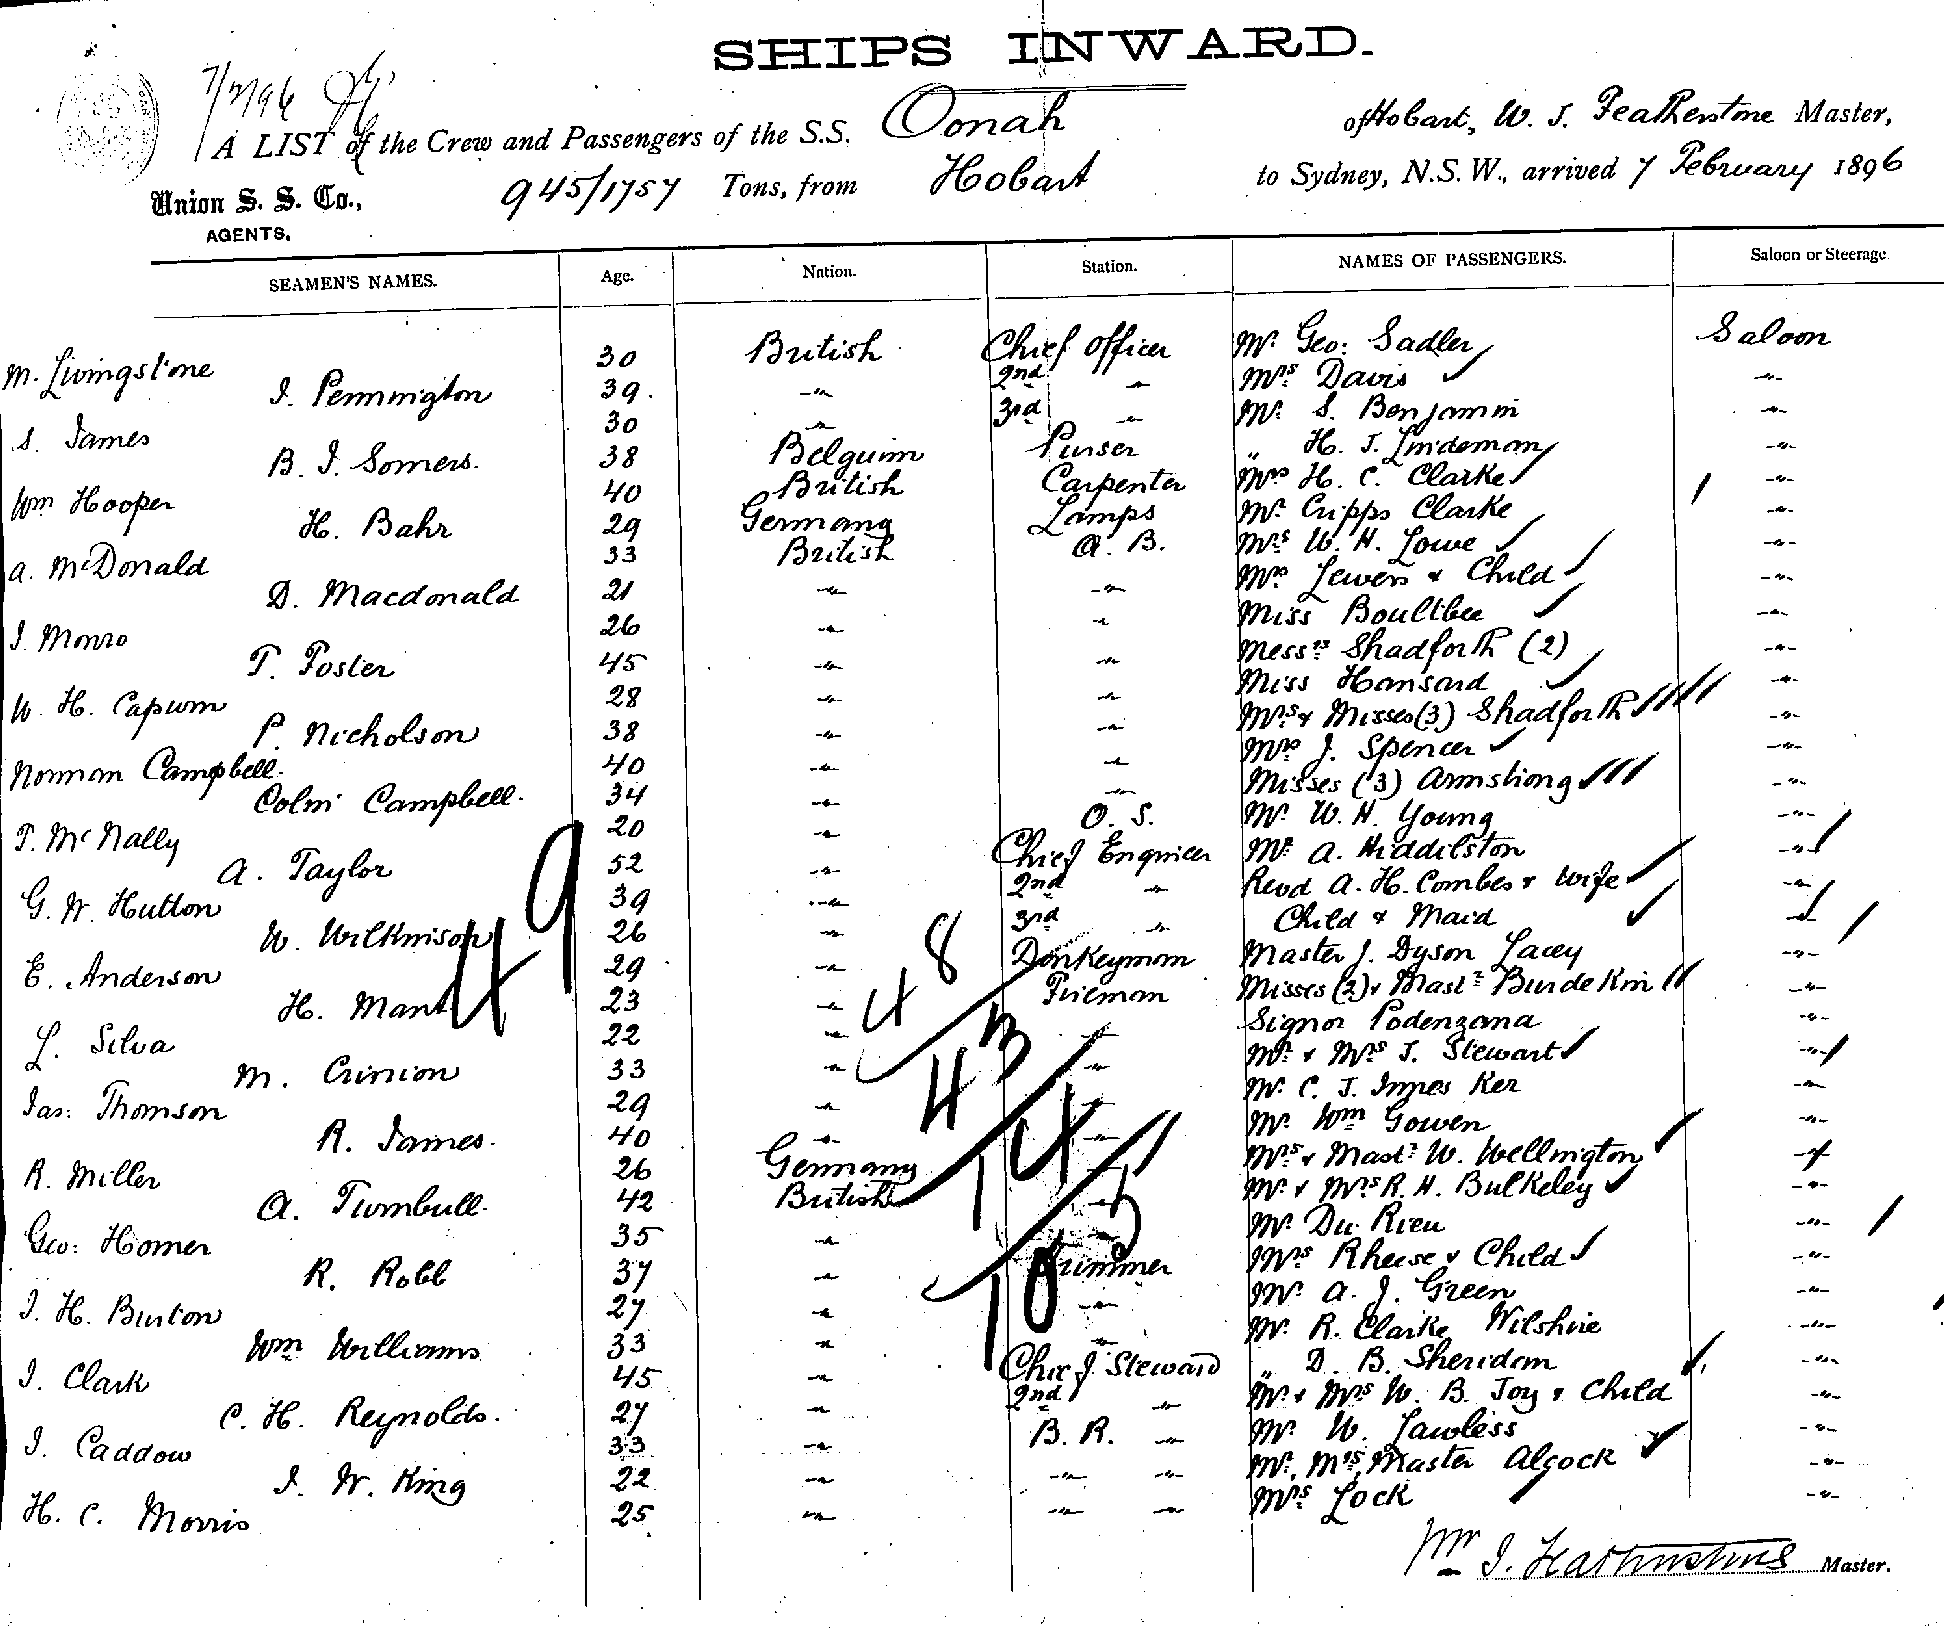 SHIPS INWARD.
7/2/96
A LIST of the Crew and Passengers of the S.S. Oonah of Hobart, W. J. Featherstone Master,
Union S. S. Co., AGENTS. 945/1757 Tons, from Hobart to Sydney, N.S.W., arrived 7 February 1896
SEAMEN'S NAMES. Age. Nation. Station. NAMES OF PASSENGERS. Saloon or Steerage
M. Livingstone 30 British Chief Officer Mr. Geo: Sadler Saloon
J. Pennington 39. -"- 2nd -"- Mrs Davis -"-
S. James 30 -"- 3rd -"- Mr. S. Benjamin -"-
B. J. Somers. 38 Belguim Purser " H. J. Lindeman -"-
Wm Hooper 40 British Carpenter Mrs H. C. Clarke -"-
H. Bahr 29 Germany Lamps Mr. Cripps Clarke -"-
A. McDonald 33 British A. B. Mrs W. H. Lowe -"-
D. Macdonald 21 -"- -"- Mrs Lewers & Child
J. Monro 26 -"- -"- Miss Boultbee -"-
T. Foster 45 -"- -"- Messrs Shadforth (2) -"-
W. H. Capurn 28 -"- -"- Miss Hansard -"-
P. Nicholson 38 -"- -"- Mrs & Misses (3) Shadforth -"-
Norman Campbell. 40 -"- -"- Mrs J. Spencer -"-
Colin Campbell. 34 -"- -"- Misses (3) Armstrong -"-
T. McNally 20 -"- O. S. Mr. W. H. Young -"-
A. Taylor 52 -"- Chief Engineer Mr. A. Hiddilston -"-
G. W. Hutton 39 -"- 2nd -"- Revd A. H. Combes & Wife -"-
W. Wilkinson 26 -"- 3rd -"- Child & Maid -"-
E. Anderson 29 -"- Donkeyman Master J. Dyson Lacey -"-
H. Mant 23 -"- Fireman Misses (2) & Mastr Burdekin -"-
L. Silva 22 -"- -"- Signor Podenzana -"-
M. Crinion 33 -"- -"- Mr & Mrs J. Stewart -"-
Jas: Thomson 29 -"- -"- Mr. C. J. Innes Ker -"-
R. James. 40 -"- -"- Mr. Wm Gowen -"-
R. Miller 26 Germany -"- Mrs & Mastr W. Wellington -"-
A. Turnbull. 42 British -"- Mr & Mrs R. H. Bulkeley -"-
Geo: Homer 35 -"- -"- Mr. Du Rieu -"-
R. Robb 37 -"- Trimmer Mrs Rheese & Child -"-
J. H. Burton 27 -"- -"- Mr. A. J. Green -"-
Wm Williams 33 -"- -"- Mr. R. Clarke Wilshire -"-
J. Clark 45 -"- Chief Steward " D. B. Sheridan -"-
C. H. Reynolds. 27 -"- 2nd -"- Mr & Mrs W. B. Joy & Child -"-
J. Caddow 33 -"- B. R. -"- Mr. W. Lawless -"-
J. W. King 22 -"- -"- -"- Mr, Mrs, Master Alcock -"-
H. C. Morris 25 -"- -"- -"- Mrs Lock -"-
49
48
43
14
15
10
Wm J. Featherstone Master.